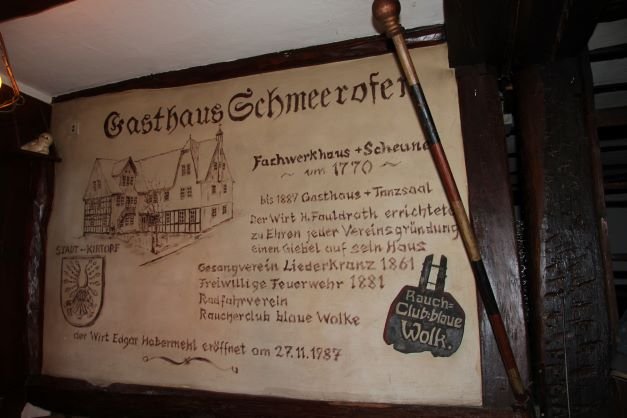 Gasthaus Schmeerofen
Fachwerkhaus + Scheune
~ um 1770 ~
bis 1887 Gasthaus + Tanzsaal
Der Wirt H. Fauldroth errichtete
zu Ehren jeder Vereinsgründung
einen Giebel auf sein Haus
Gesangverein Liederkranz 1861
Freiwillige Feuerwehr 1881
Radfahrverein
Raucherclub blaue Wolke
der Wirt Edgar Habermehl eröffnet am 27.11.1987
STADT - KIRTORF
Rauch=
Club=blaue
Wolk.